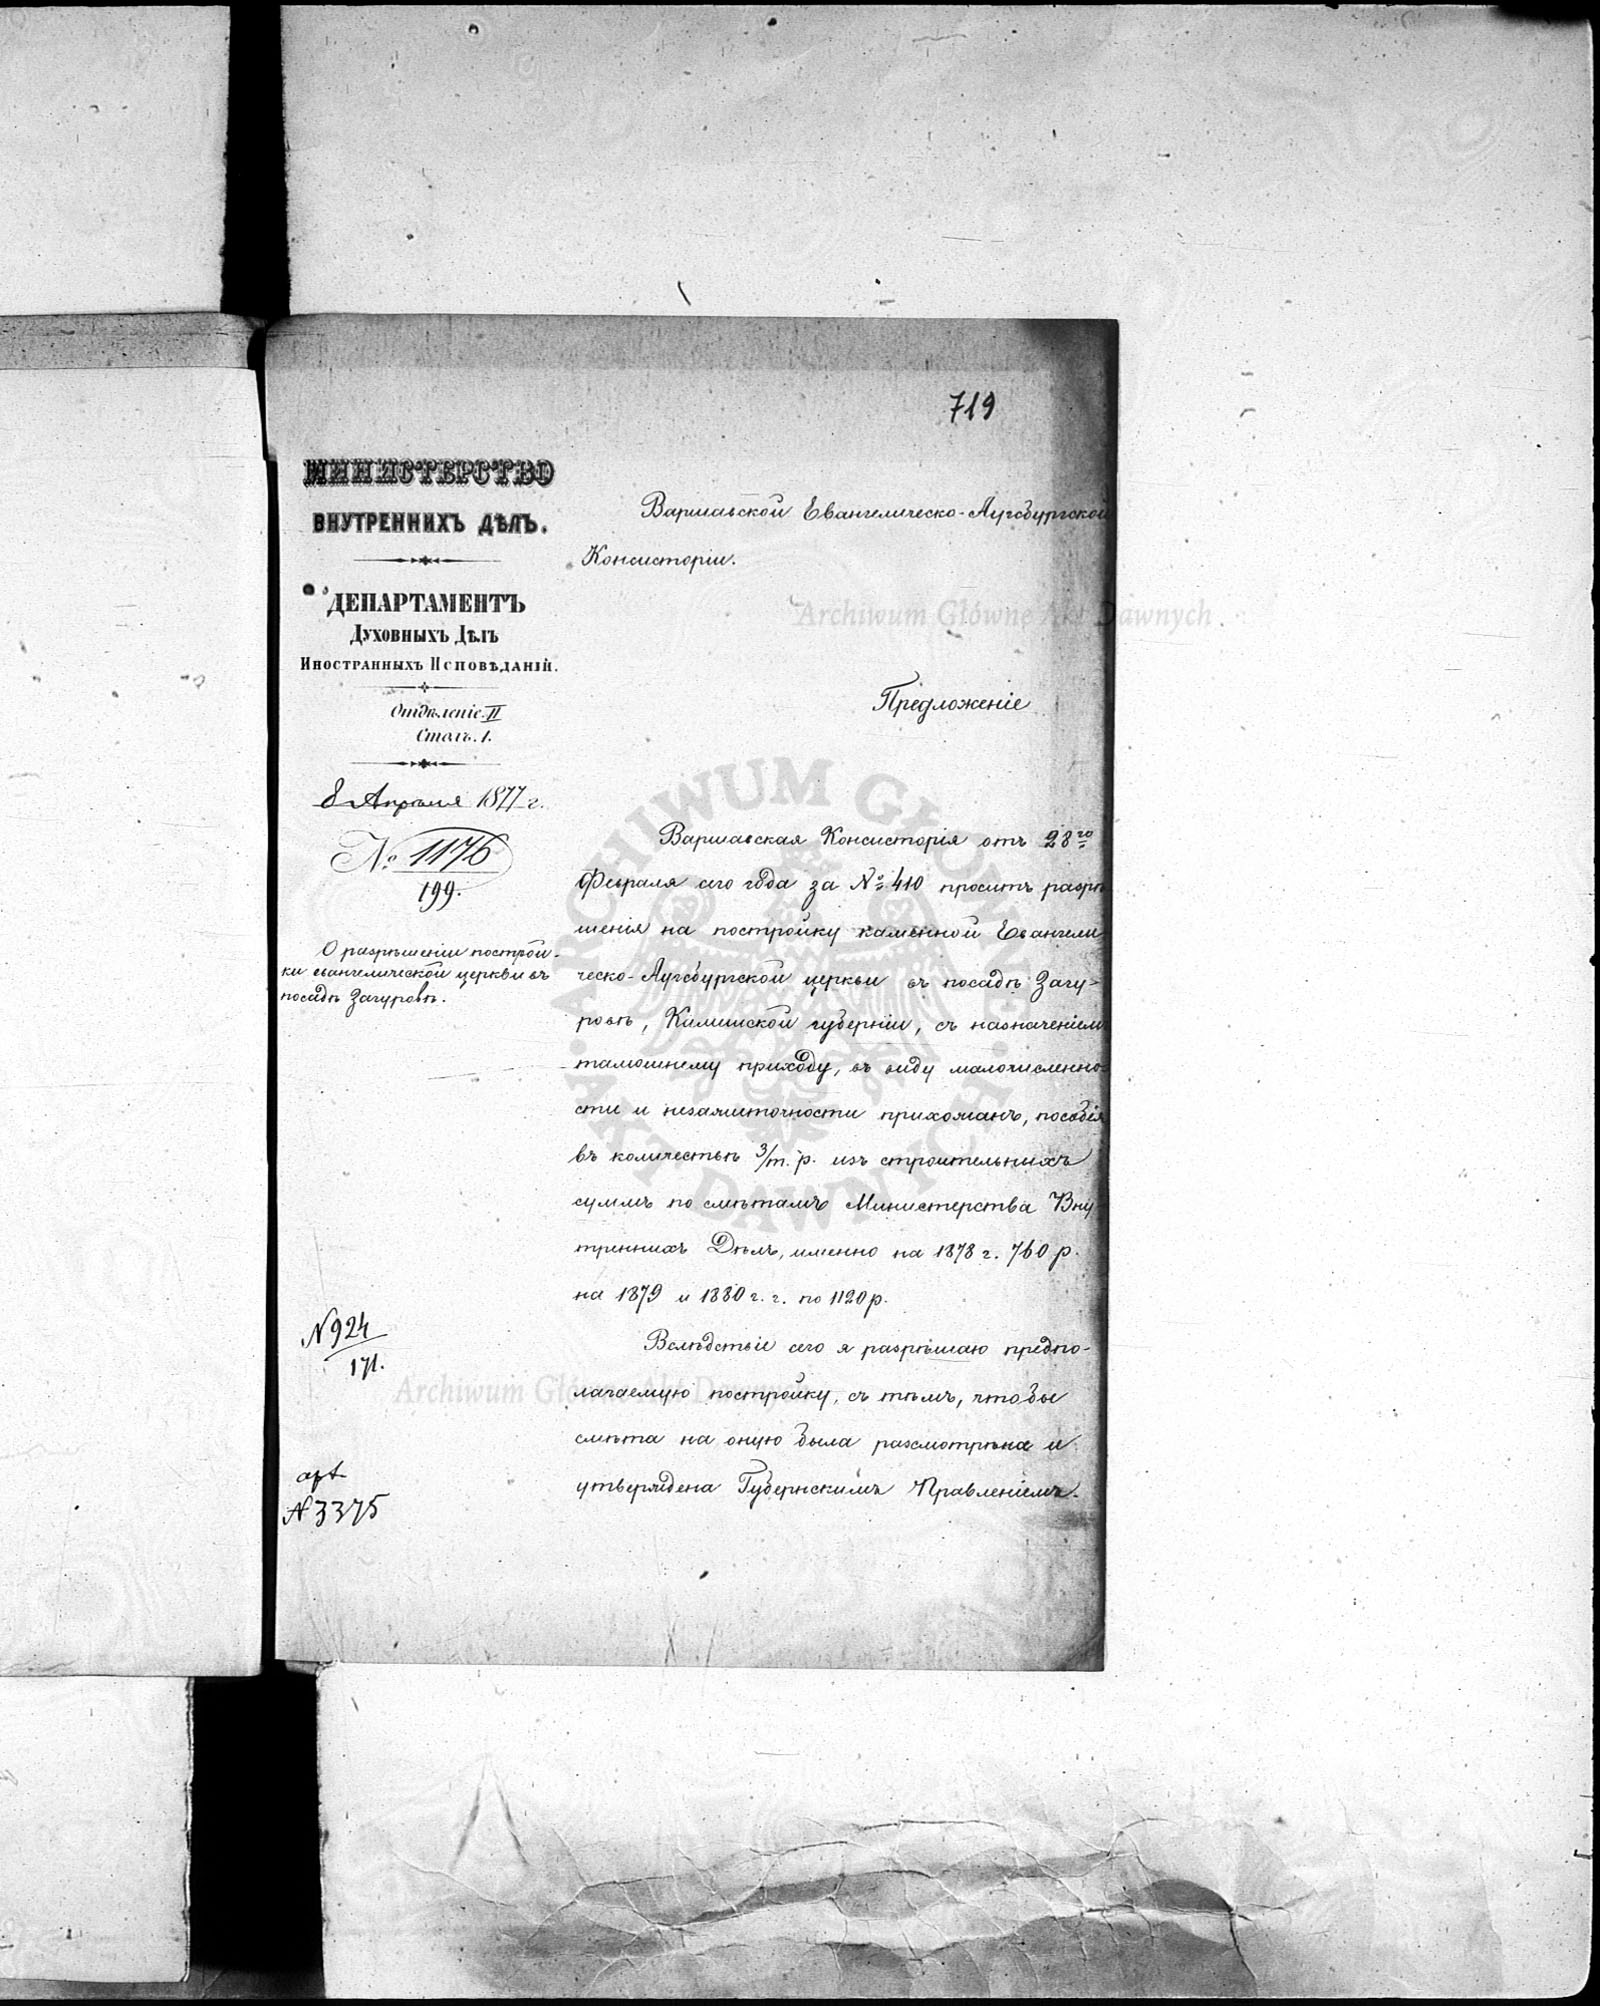 719
МИНИСТЕРСТВО
ВНУТРЕННИХЪ ДѢЛЪ.
ДЕПАРТАМЕНТЪ
ДУХОВНЫХЪ ДѢЛЪ
ИНОСТРАННЫХЪ ИСПОВѢДАНІЙ.
Отдѣленіе II
Столъ. 1.
8 Апрѣля 1877 г.
№ 1176
199.
О разрѣшеніи построй-
ки евангелической церкви въ
посадѣ Загуровѣ.
N 924
171.
apt
N 3375
Варшавской Евангелическо-Аугсбургской
Консисторіи.
Предложеніе
Варшавская Консисторія отъ 28го
Февраля сего года за № 410 проситъ разрѣ
шенія на постройку каменной Евангели
ческо-Аугсбургской церкви въ посадѣ Загу-
ровѣ, Калишской губерніи, съ назначеніемъ
тамошнему приходу, въ виду малочисленно-
сти и незажиточности прихожанъ, пособія
въ количествѣ 3/т. р. изъ строительныхъ
суммъ по смѣтамъ Министерства Вну
треннихъ Дѣлъ, именно на 1878 г. 760 р.
на 1879 и 1880 г. г. по 1120 р.
Вслѣдствіе сего я разрѣшаю предпо-
лагаемую постройку, съ тѣмъ, чтобы
смѣта на оную была разсмотрѣна и
утверждена Губернскимъ Правленіемъ.
Archiwum Główne Akt Dawnych
ARCHIWUM GŁÓWNE
AKT DAWNYCH
Archiwum Główne Akt Dawnych